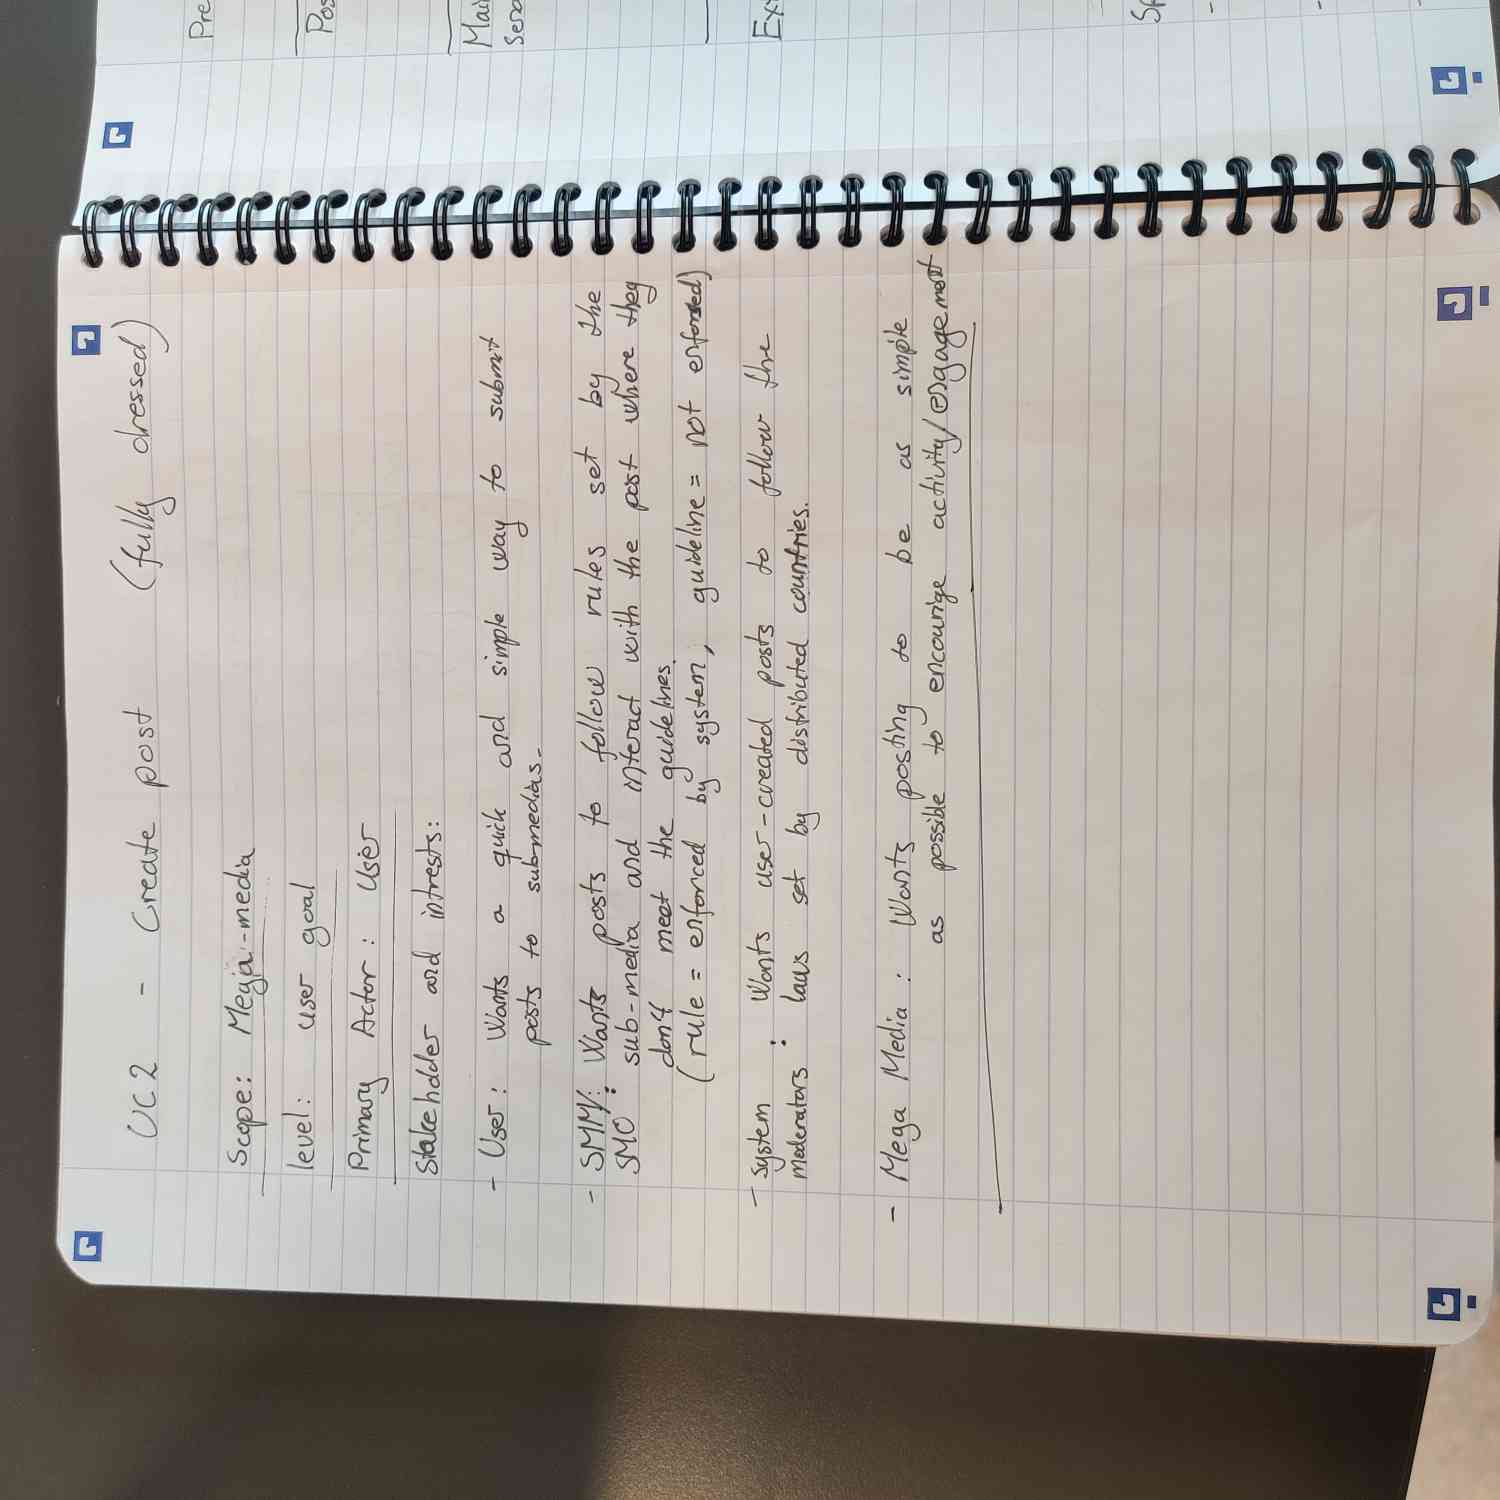 UC2 - Create post (fully dressed)
Scope: Mega-media
level: user goal
Primary Actor: User
Stakeholder and intrests:
- User: Wants a quick and simple way to submit
posts to submedias.
- SMM/: Wants posts to follow rules set by the
SMO sub-media and interact with the post where they
don't meet the guidelines.
(rule = enforced by system, guideline = not enforsed)
- system : Wants user-created posts to follow the
moderators laws set by distributed countries.
- Mega Media: Wants posting to be as simple
as possible to encourige activity/engagement
Pre
Pos
Mai
Ext
Sp